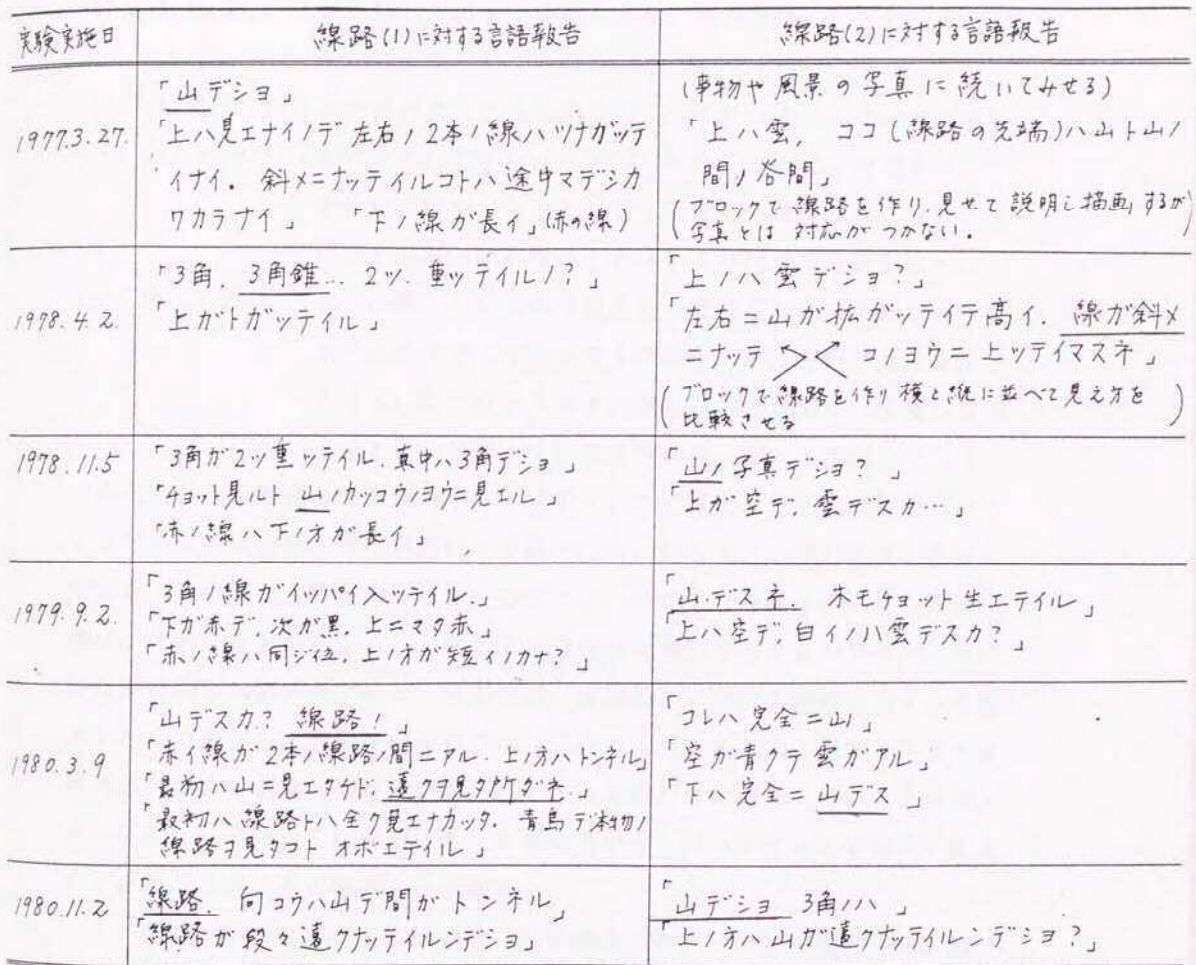 実験実施日
線路(1)に対する言語報告
線路(2)に対する言語報告
1977.3.27.
「山デショ」
「上ハ見エナイノデ左右ノ2本ノ線ハツナガッテ
イナイ. 斜メニナッテイルコトハ途中マデシカ
ワカラナイ」 「下ノ線が長イ」(赤の線)
(事物や風景の写真に続いてみせる)
「上ハ雲, ココ(線路の先端)ハ山ト山ノ
間ノ谷間」
(ブロックで線路を作り,見せて説明し描画するが
写真とは対応がつかない.)
1978.4.2.
「3角. 3角錐… 2ツ. 重ッテイルノ?」
「上ガトガッテイル」
「上ノハ雲デショ?」
「左右ニ山が拡ガッテイテ高イ. 線が斜メ
ニナッテ コノヨウニ上ッテイマスネ」
(ブロックで線路を作り横と縦に並べて見え方を
比較させる)
1978.11.5
「3角が2ツ重ッテイル. 真中ハ3角デショ」
「チョット見ルト山ノカッコウノヨウニ見エル」
「赤ノ線ハ下ノ方が長イ」
「山ノ写真デショ?」
「上が空デ, 雲デスカ…」
1979.9.2.
「3角ノ線ガイッパイ入ッテイル.」
「下ガ赤デ, 次が黒, 上ニマタ赤」
「赤ノ線ハ同ジ位, 上ノ方が短イノカナ?」
「山デスネ. 木モチョット生エテイル」
「上ハ空デ, 白イノハ雲デスカ?」
1980.3.9
「山デスカ? 線路!」
「赤イ線が2本ノ線路ノ間ニアル. 上ノ方ハトンネル」
「最初ハ山ニ見エタケド, 遠クヲ見タワケダネ.」
「最初ハ線路トハ全ク見エナカッタ. 青鳥デ本物ノ
線路ヲ見タコトオボエテイル」
「コレハ完全ニ山」
「空が青クテ雲ガアル」
「下ハ完全ニ山デス」
1980.11.2
「線路. 向コウハ山デ間がトンネル」
「線路が段々遠クナッテイルンデショ」
「山デショ 3角ノハ」
「上ノ方ハ山が遠クナッテイルンデショ?」